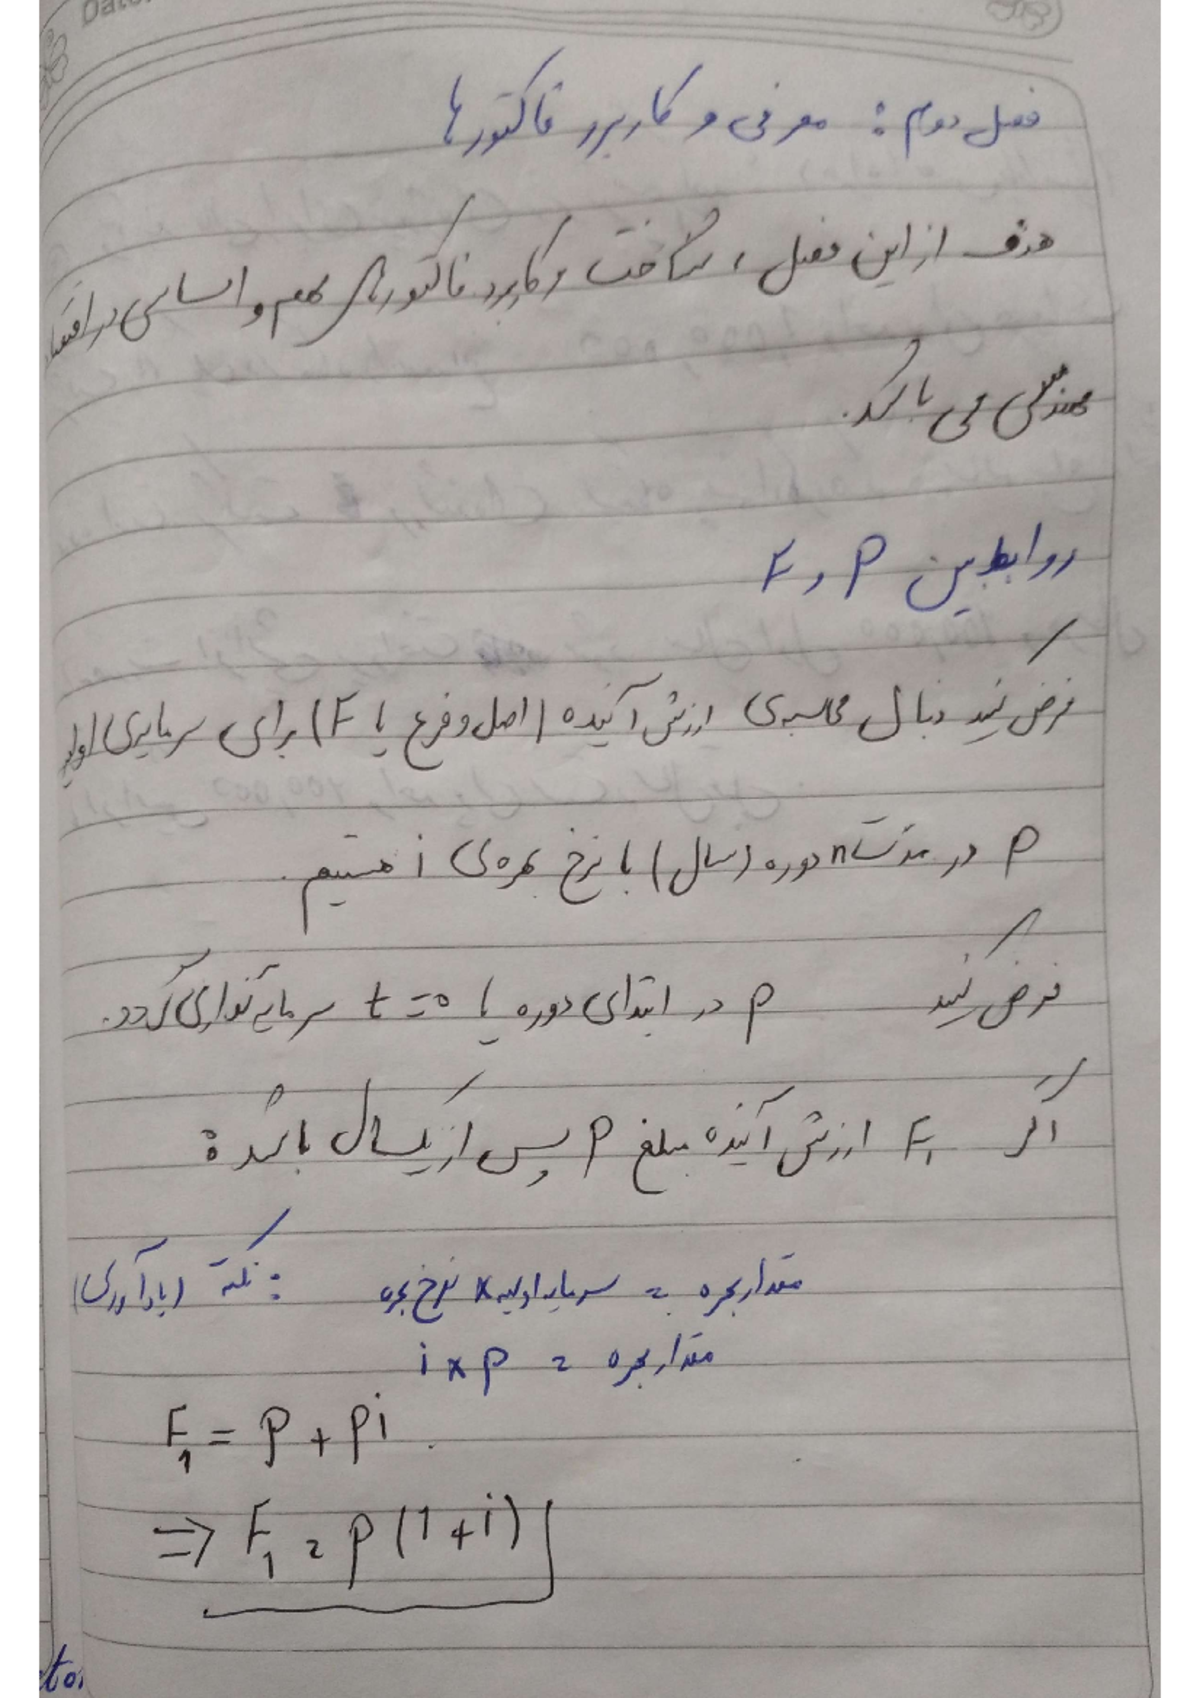 Date:
فصل دوم : معرفی و کاربرد فاکتورها
هدف از این فصل ، شناخت و کاربرد فاکتورهای مهم و اساسی در اقتصاد
مهندسی می باشد.
روابط بین P و F
فرض کنید دنبال محاسبه‌ی ارزش آینده (اصل و فرع یا F) برای سرمایه‌ی اولیه
P در مدت n دوره (سال) با نرخ بهره‌ی i هستیم.
فرض کنید P در ابتدای دوره یا t=0 سرمایه‌گذاری گردد.
اگر F₁ ارزش آینده مبلغ P پس از یکسال باشد :
نکته (یادآوری) : مقدار بهره = سرمایه اولیه × نرخ بهره
مقدار بهره = P × i
F₁ = P + Pi
⇒ F₁ = P(1+i)